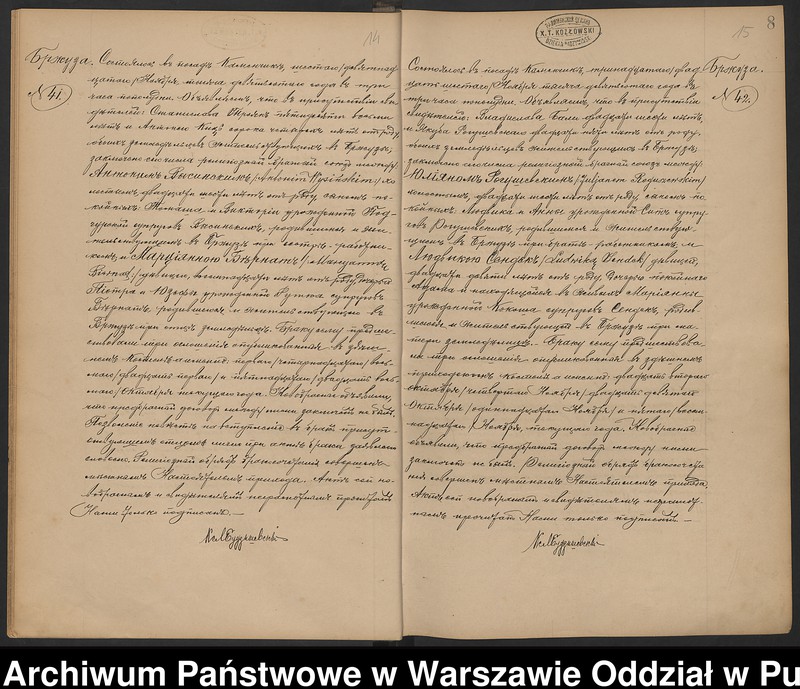 14
Бржуза.
№ 41.
Состоялось въ посадѣ Каменчикѣ, шестаго /девятнад-
цатаго/ Ноября тысяча девятьсотаго года въ три
часа пополудни. Объявляемъ, что въ присутствіи сви-
дѣтелей: Станислава пятидесяти восьми
лѣтъ и Антонія сорока четырехъ лѣтъ отъ роду,
обоихъ земледѣльцевъ жительствующихъ въ Бржузѣ,
заключенъ сего числа религіозный брачный союзъ между:
Антономъ Высинскимъ /Antonim Wysińskim/ хо-
лостымъ, двадцати шести лѣтъ отъ роду, сыномъ по-
койныхъ: Томаша и Викторіи урожденной Под-
гурской супруговъ Высинскихъ, родившимся и жи-
тельствующимъ въ Бржузѣ при сестрѣ
и Маріанною Бѣрнатъ, /Maryanną
Biernat/ дѣвицею, восемнадцати лѣтъ отъ роду, дочерью
Піотра и Юзефы урожденной супруговъ
Бѣрнатъ, родившеюся и жительствующею въ
Бржузѣ при отцѣ земледѣльцѣ. Браку сему предше-
ствовали три оглашенія опубликованныя въ здѣш-
немъ костелѣ а именно: перваго /четырнадцатаго/, вось-
маго /двадцать перваго/ и пятнадцатаго /двадцать вось-
маго/ Октября текущаго года. Новобрачные объявили,
что предбрачный договоръ между ними заключенъ не былъ.
Позволеніе на вступленіе въ бракъ присут-
ствующимъ отцомъ лично при актѣ брака
словесно. Религіозный обрядъ бракосочетанія совершенъ
мѣстнымъ Настоятелемъ прихода. Актъ сей но-
вобрачнымъ и свидѣтелямъ неграмотнымъ прочитанъ
Нами только подписанъ.—
15
8
Х. Т. KOZŁOWSKI
Бржуза.
№ 42.
Состоялось въ посадѣ Каменчикѣ, тринадцатаго /двад-
цать шестаго/ Ноября тысяча девятьсотаго года въ
три часа пополудни. Объявляемъ, что въ присутствіи
свидѣтелей: Владислава двадцати шести лѣтъ,
и Якуба Рогушевскаго двадцати пяти лѣтъ отъ роду,
обоихъ земледѣльцевъ жительствующихъ въ Бржузѣ,
заключенъ сего числа религіозный брачный союзъ между:
Юліяномъ Рогушевскимъ /Juljanem Roguszewskim/
холостымъ, двадцати шести лѣтъ отъ роду, сыномъ по-
койныхъ Людвика и Анны урожденной супру-
говъ Рогушевскихъ, родившимся и жительствую-
щимъ въ Бржузѣ при братѣ и
Людвикою Сендекъ /Ludwiką Sendek/ дѣвицей,
двадцати девяти лѣтъ отъ роду, дочерью покойнаго
Адама и находящейся въ живыхъ Маріанны
урожденной Кокоша супруговъ Сендекъ, родив-
шеюся и жительствующею въ Бржузѣ при ма-
тери земледѣлицѣ.— Браку сему предшествова-
ли три оглашенія опубликованныя въ здѣшнемъ
приходскомъ костелѣ а именно: двадцать втораго
Октября /четвертаго Ноября/, двадцать девятаго
Октября /одиннадцатаго Ноября/ и пятаго /восем-
надцатаго/ Ноября, текущаго года. Новобрачные
объявили, что предбрачный договоръ между ними
заключенъ не былъ. Религіозный обрядъ бракосочета-
нія совершенъ мѣстнымъ Настоятелемъ прихода.
Актъ сей новобрачнымъ и свидѣтелямъ неграмот-
нымъ прочитанъ Нами только подписанъ.—
Archiwum Państwowe w Warszawie Oddział w Pu